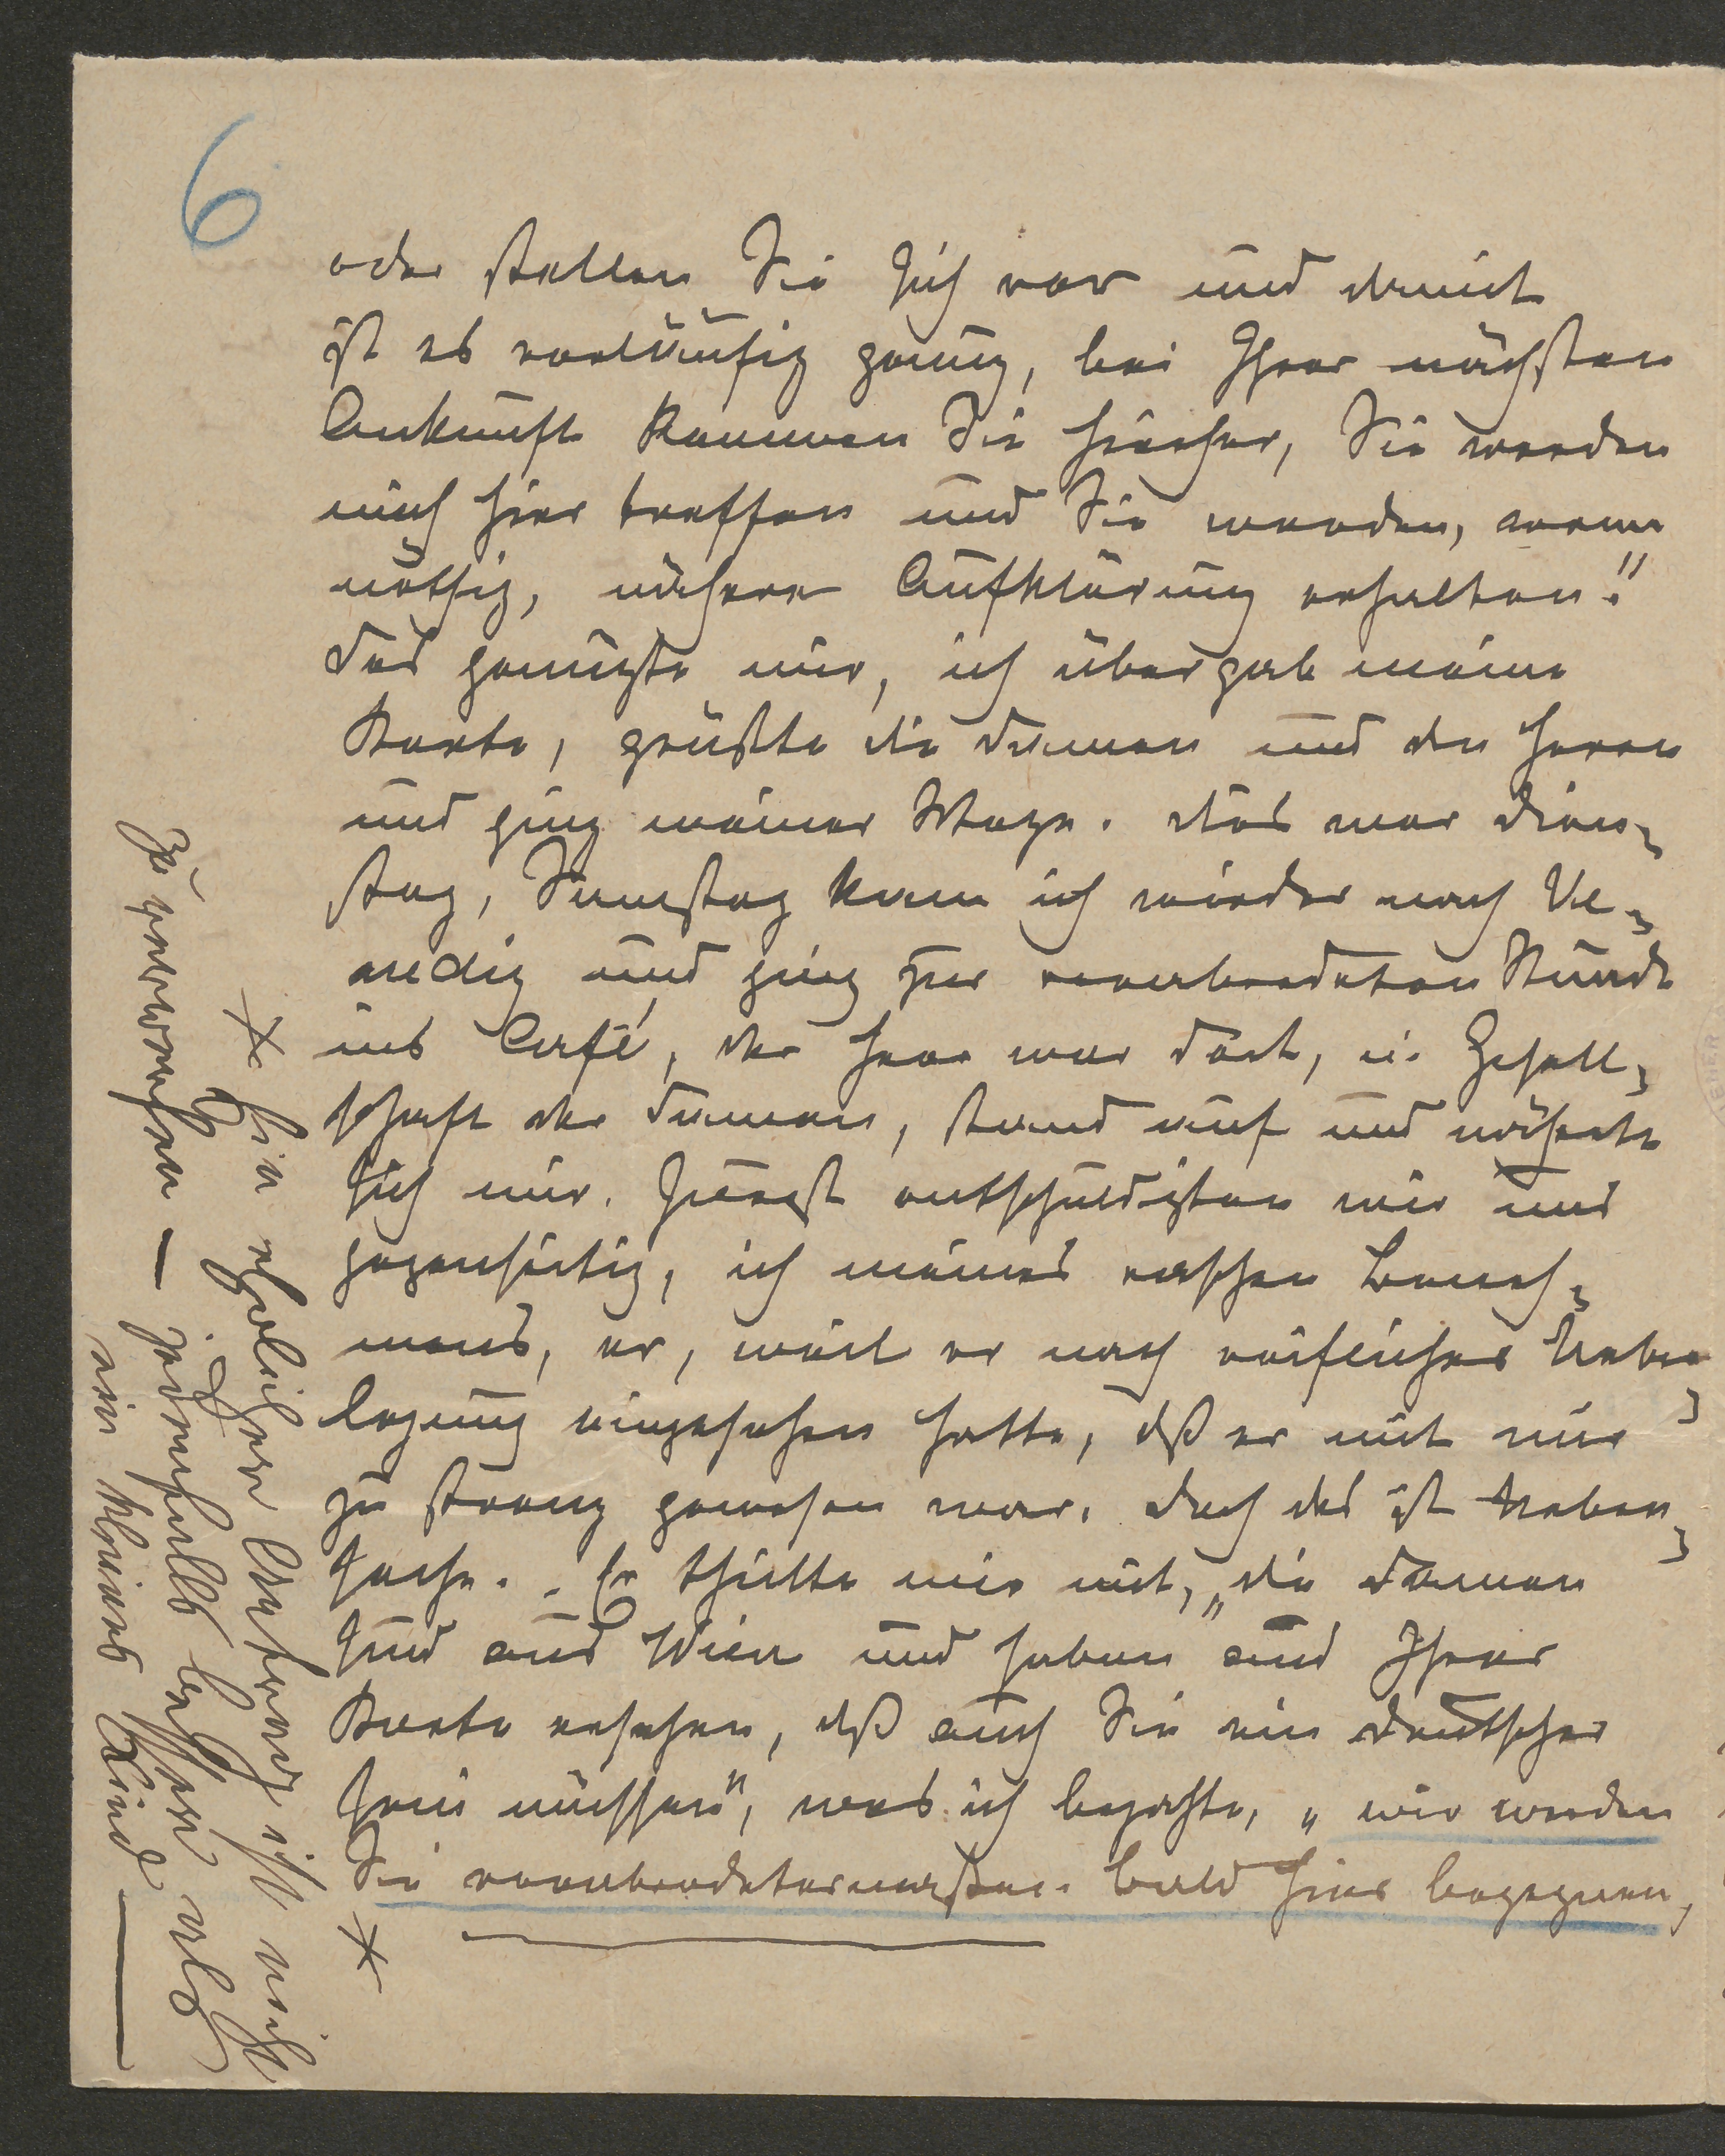 6
oder stellen Sie sich vor und damit
ist es vorläufig genug, bei Ihrer nächsten
Ankunft kommen Sie hierher, Sie werden
mich hier treffen und Sie werden, wenn
nöthig, nähere Aufklärung erhalten."
Das genügte mir, ich übergab meine
Karte, grüßte die Damen und den Herrn
und ging meiner Wege. Das war Diens-
tag, Samstag kam ich wieder nach Ve-
nedig und ging zur verabredeten Stunde
ins Café, der Herr war dort, in Gesell-
schaft der Damen, stand auf und näherte
sich mir. Zuerst entschuldigten wir uns
gegenseitig, ich meines raschen Beneh-
mens, er, weil er nach reiflicher Ueber-
legung eingesehen hatte, daß er mit mir
zu streng gewesen war. Doch das ist Neben-
sache. Er theilte mir mit, „die Damen
sind aus Wien und haben aus Ihrer
Karte ersehen, daß auch Sie ein Deutscher
sein müssen", was ich bejahte, „wir werden
Sie verabredetermaßen bald hier begegnen,
*
* Ein ehrlicher ist nicht
zu verwerfen — jedenfalls besser als
ein kleines Kind —